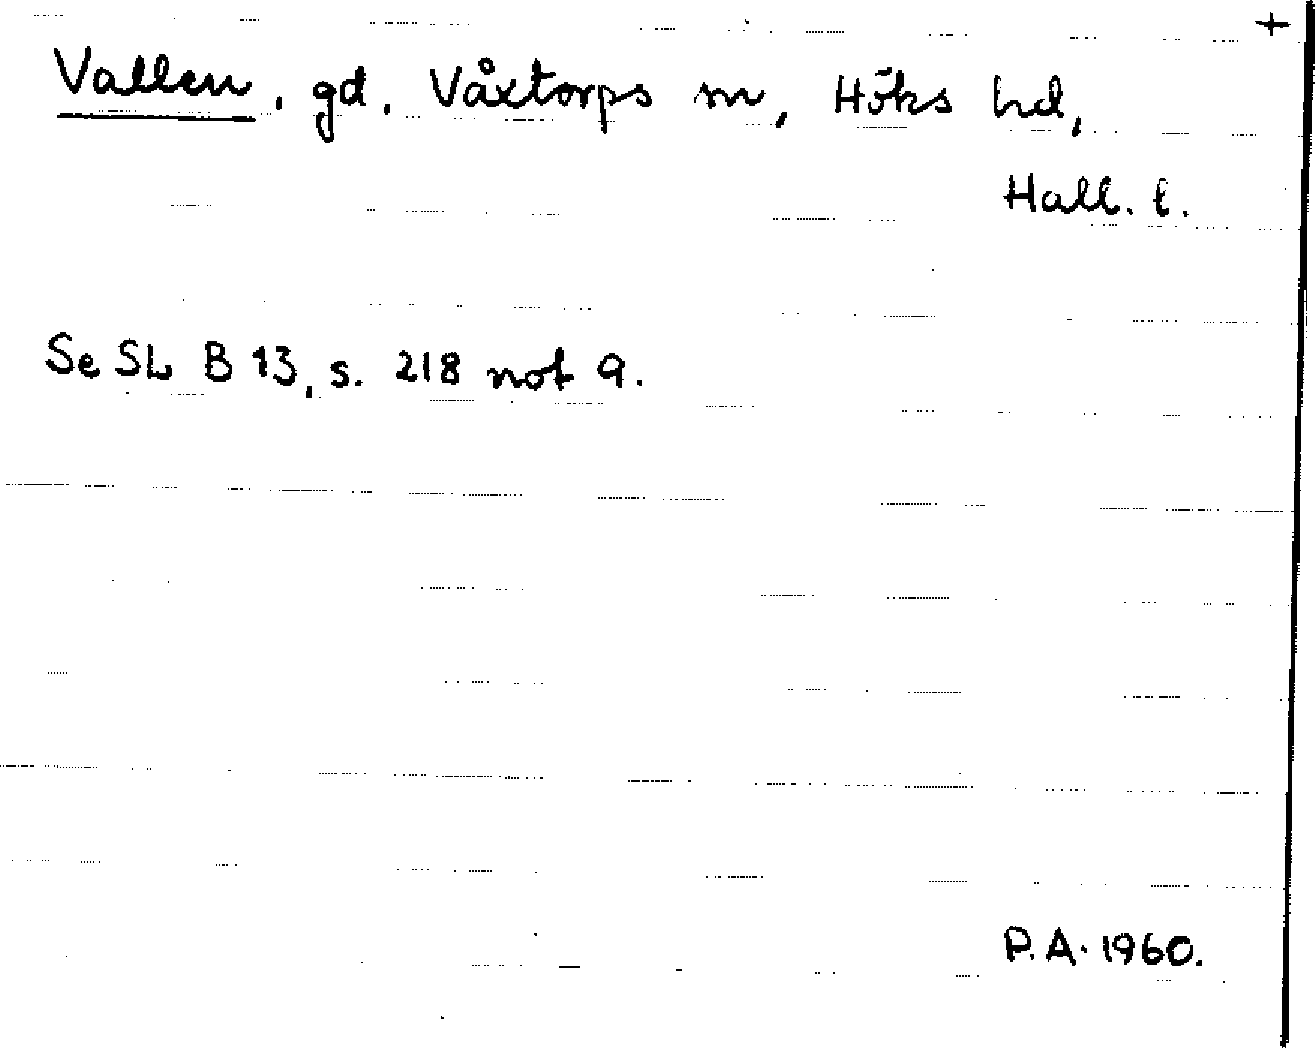 +
Vallen, gd, Våxtorps sn, Höks hd,
Hall. l.
Se SL B 13, s. 218 not 9.
P.A. 1960.